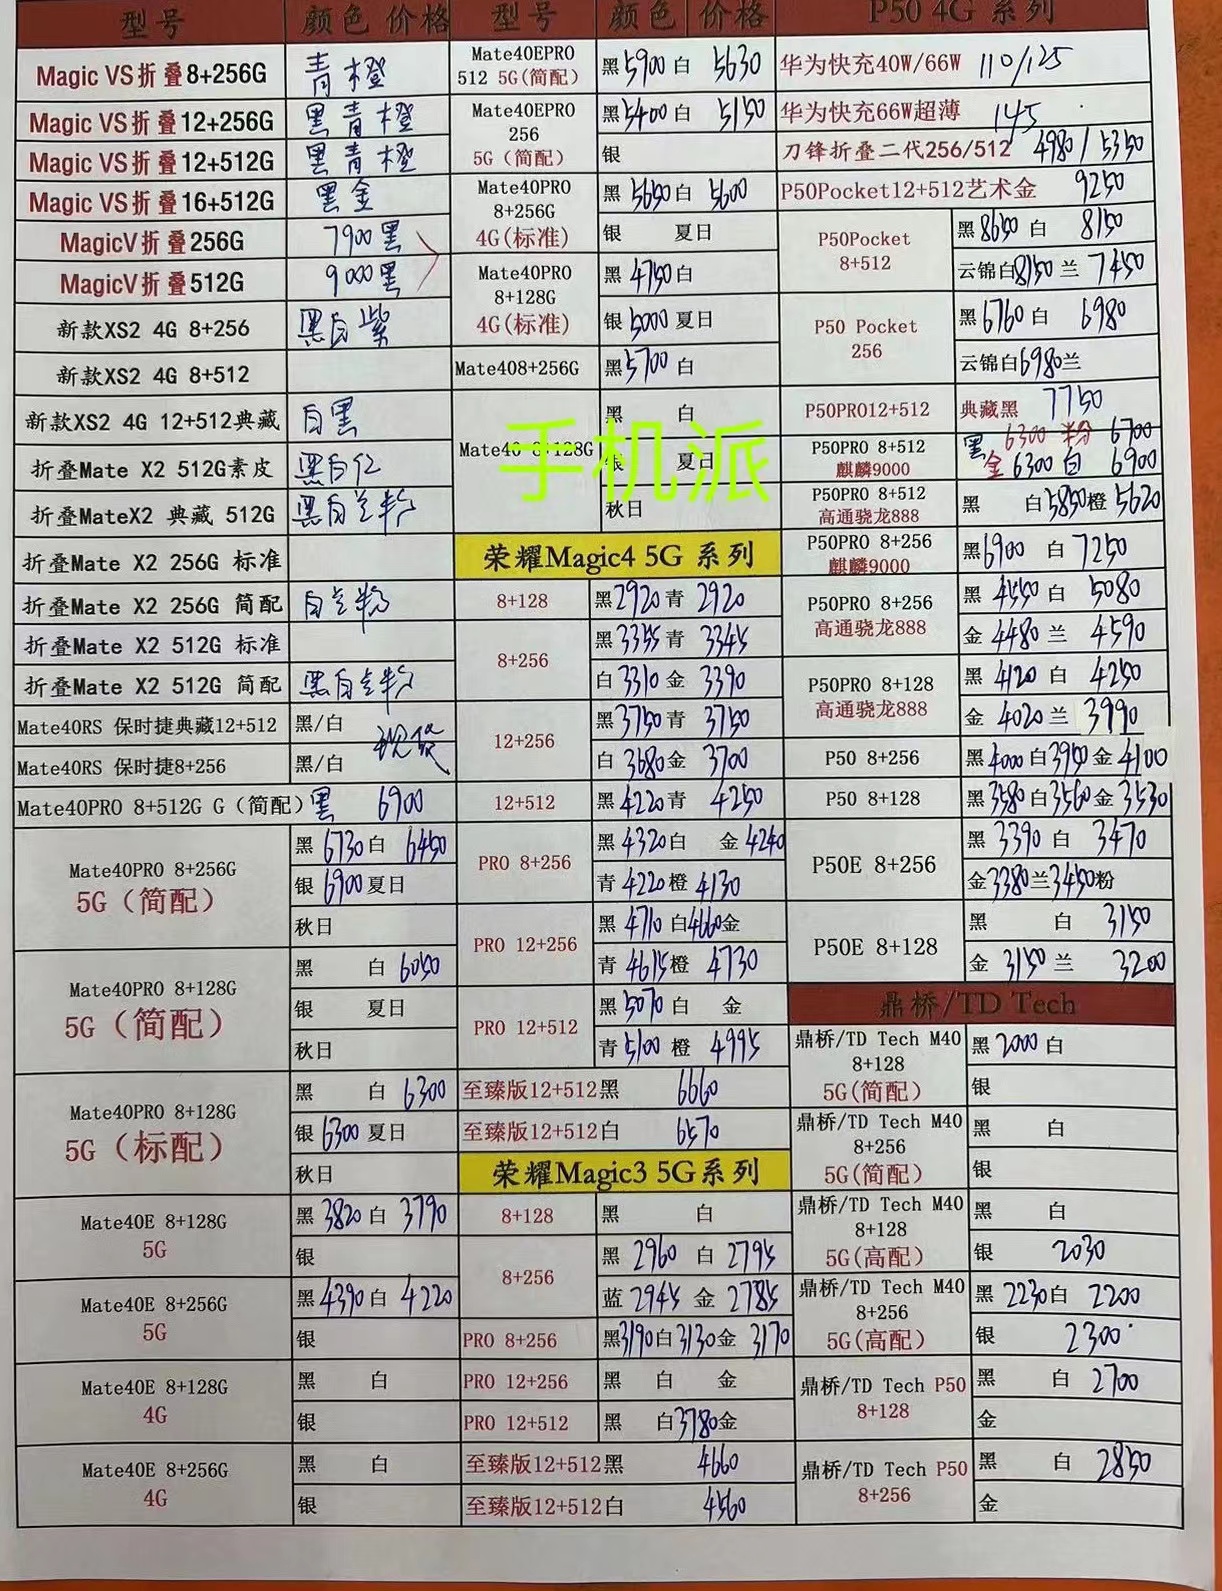 型号 颜色 价格
Magic VS折叠8+256G 青 橙
Magic VS折叠12+256G 黑 青 橙
Magic VS折叠12+512G 黑 青 橙
Magic VS折叠16+512G 黑 金
MagicV折叠256G 7900黑
MagicV折叠512G 9000黑
新款XS2 4G 8+256 黑白紫
新款XS2 4G 8+512
新款XS2 4G 12+512典藏 白黑
折叠Mate X2 512G素皮 黑白红
折叠MateX2 典藏 512G 黑白兰粉
折叠Mate X2 256G 标准
折叠Mate X2 256G 简配 白兰粉
折叠Mate X2 512G 标准
折叠Mate X2 512G 简配 黑白兰粉
Mate40RS 保时捷典藏12+512 黑/白
现货
Mate40RS 保时捷8+256 黑/白
Mate40PRO 8+512G G（简配）黑 6900
Mate40PRO 8+256G
5G（简配）
黑 6730 白 6450
银 6900 夏日
秋日
Mate40PRO 8+128G
5G（简配）
黑 白 6050
银 夏日
秋日
Mate40PRO 8+128G
5G（标配）
黑 白 6300
银 6300 夏日
秋日
Mate40E 8+128G
5G
黑 3820 白 3790
银
Mate40E 8+256G
5G
黑 4390 白 4220
银
Mate40E 8+128G
4G
黑 白
银
Mate40E 8+256G
4G
黑 白
银
型号 颜色 价格
Mate40EPRO
512 5G(简配)
黑 5900 白 5630
Mate40EPRO
256
5G（简配）
黑 5400 白 5150
银
Mate40PRO
8+256G
4G(标准)
黑 5650 白 5600
银 夏日
Mate40PRO
8+128G
4G(标准)
黑 4750 白
银 5000 夏日
Mate408+256G 黑 5700 白
Mate40 8+128G
黑 白
银 夏日
秋日
手机派
荣耀Magic4 5G 系列
8+128 黑 2920 青 2920
8+256
黑 3355 青 3345
白 3310 金 3390
12+256
黑 3750 青 3750
白 3680 金 3700
12+512 黑 4220 青 4250
PRO 8+256
黑 4320 白 金 4240
青 4220 橙 4130
PRO 12+256
黑 4710 白 4660 金
青 4615 橙 4730
PRO 12+512
黑 5070 白 金
青 5100 橙 4995
至臻版12+512黑 6660
至臻版12+512白 6570
荣耀Magic3 5G系列
8+128 黑 白
8+256
黑 2960 白 2795
蓝 2945 金 2785
PRO 8+256 黑 3190 白 3130 金 3170
PRO 12+256 黑 白 金
PRO 12+512 黑 白 3780 金
至臻版12+512黑 4660
至臻版12+512白 4560
P50 4G 系列
华为快充40W/66W 110/125
华为快充66W超薄 145
刀锋折叠二代256/512 4980/5350
P50Pocket12+512艺术金 9250
P50Pocket
8+512
黑 8650 白 8150
云锦白 8150 兰 7450
P50 Pocket
256
黑 6760 白 6980
云锦白 6980 兰
P50PRO12+512 典藏黑 7750
P50PRO 8+512
麒麟9000
黑 6300 粉 6700
金 6300 白 6900
P50PRO 8+512
高通骁龙888
黑 白 5850 橙 5620
P50PRO 8+256
麒麟9000
黑 6900 白 7250
P50PRO 8+256
高通骁龙888
黑 4550 白 5080
金 4480 兰 4590
P50PRO 8+128
高通骁龙888
黑 4120 白 4250
金 4020 兰 3990
P50 8+256 黑 4000 白 3950 金 4100
P50 8+128 黑 3580 白 3560 金 3530
P50E 8+256
黑 3390 白 3470
金 3380 兰 3450 粉
P50E 8+128
黑 白 3150
金 3150 兰 3200
鼎桥/TD Tech
鼎桥/TD Tech M40
8+128
5G(简配)
黑 2000 白
银
鼎桥/TD Tech M40
8+256
5G(简配)
黑 白
银
鼎桥/TD Tech M40
8+128
5G(高配)
黑 白
银 2030
鼎桥/TD Tech M40
8+256
5G(高配)
黑 2230 白 2200
银 2300
鼎桥/TD Tech P50
8+128
黑 白 2700
金
鼎桥/TD Tech P50
8+256
黑 白 2850
金